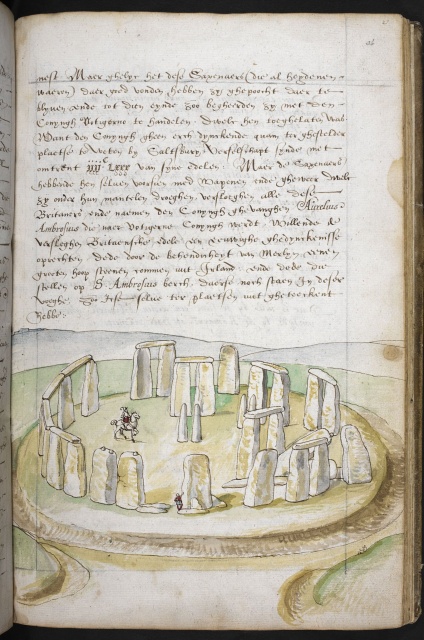 nest Maer ghelyc het dese Saxenaers (die al heydenen
waeren) daer goed vonden hebben sy ghepoocht daer te
blyven ende tot dien eynde zoo begheerden sy met den
Conyngh Votigerne te handelen. Dwelc hem toeghelaten was
Want den Conyngh gheen erch dynckende quam ter ghestelder
plaetse te weten by Saltsbury, verselschapt synde met
omtrent iiii^c LXXX van syne edelen. Maer de Saxenaers
hebbende hen selven voorsien met wapenen ende gheweer dwelc
sy onder hun mantelen droeghen versloeghen alle dese
Britaners ende naemen den Conyngh ghevanghen Aurelius
Ambrosius die naer Votigerne Conyngh werdt, willende de
versleghen Britaensche edele een eeuwighe ghedynckenisse
oprechten, dede door de behendicheyt van Merlyn eenen
grooten hoop steenen commen uut Irland, ende dede die
stellen op S. Ambrosius berch, diverse noch staen In deser
voeghe. selve ter plaetsen uut ghetekent
hebbe.